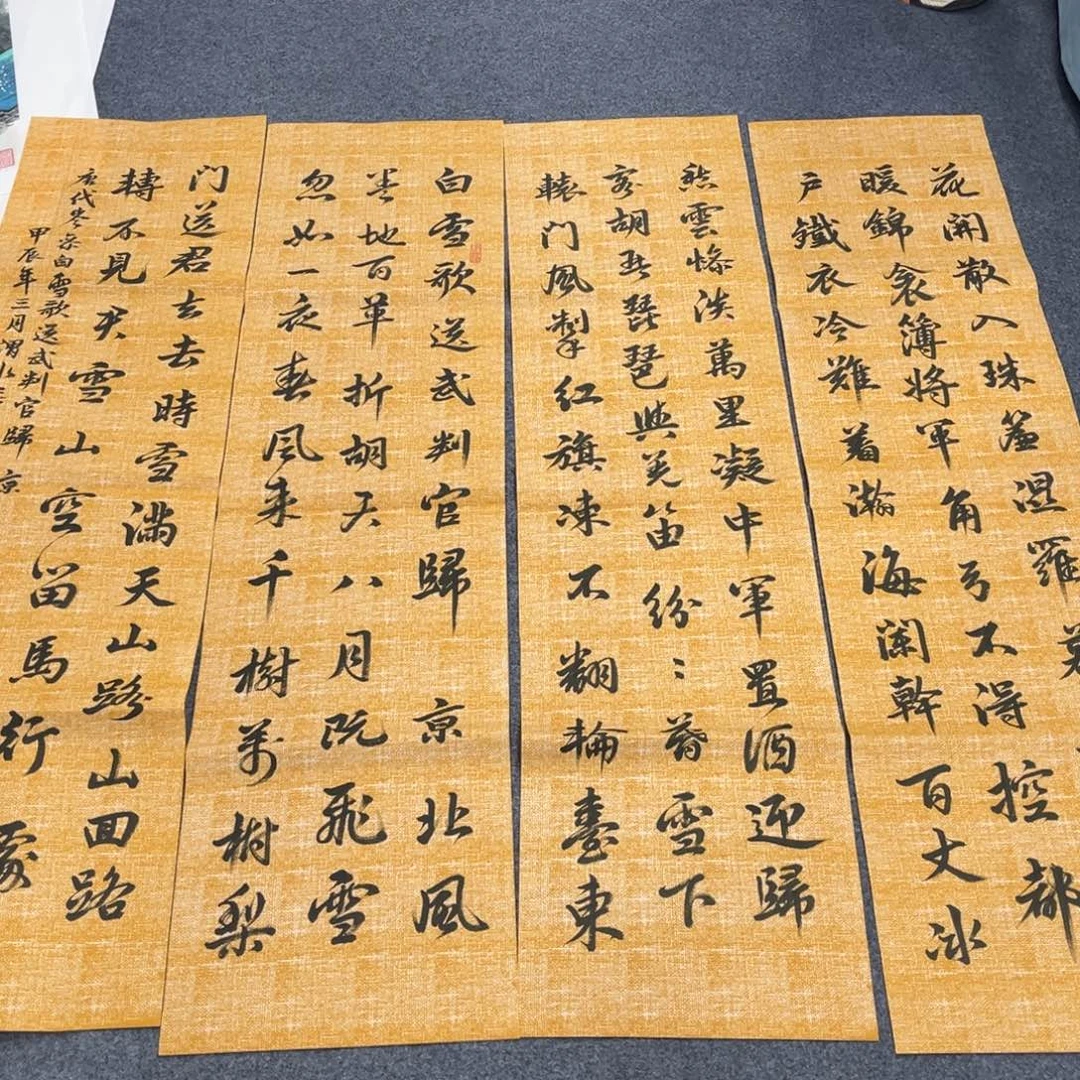 白雪歌送武判官歸京北風
卷地百草折胡天八月即飛雪
忽如一夜春風来千樹萬樹梨
花開散入珠簾濕羅幕
暖錦衾簿將軍角弓不得控都
户鐵衣冷難着瀚海闌幹百丈冰
愁雲慘淡萬里凝中軍置酒迎歸
客胡琴琵琶與羌笛纷〻暮雪下
轅門風掣红旗凍不翻輪臺東
门送君去去時雪滿天山路山回路
轉不見君雪山空留馬行處
唐代岑參白雪歌送武判官歸京
甲辰年三月渭水